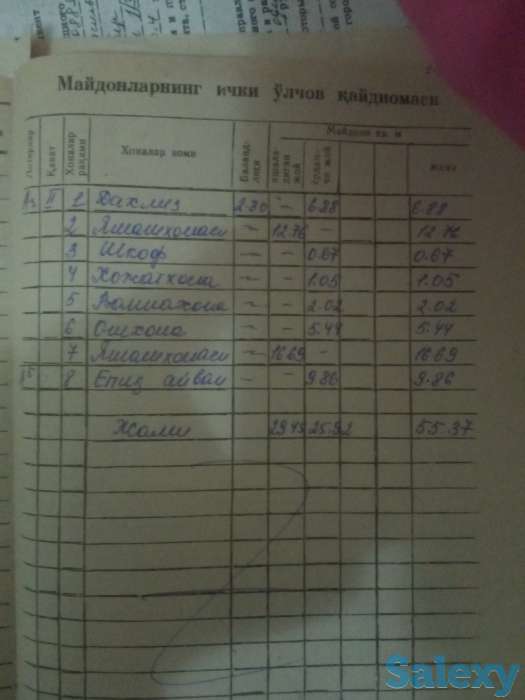 Майдонларнинг ички ўлчов қайдномаси
Литерлар Қават Хоналар рақами Хоналар номи Баланд-лиги яшала-диган жой ёрдам-чи жой Майдони кв. м жами
II 1 Дахлиз 2.20 - 6.88 6.88
2 Яшашхонаси - 12.76 - 12.76
3 Шкоф - - 0.67 0.67
4 Хожатхона - - 1.05 1.05
5 Ваннахона - - 2.02 2.02
6 Ошхона - - 5.44 5.44
7 Яшашхонаси - 16.69 - 16.69
8 Епиқ айван - - 9.86 9.86
Жами 29.45 25.92 55.37
Salexy